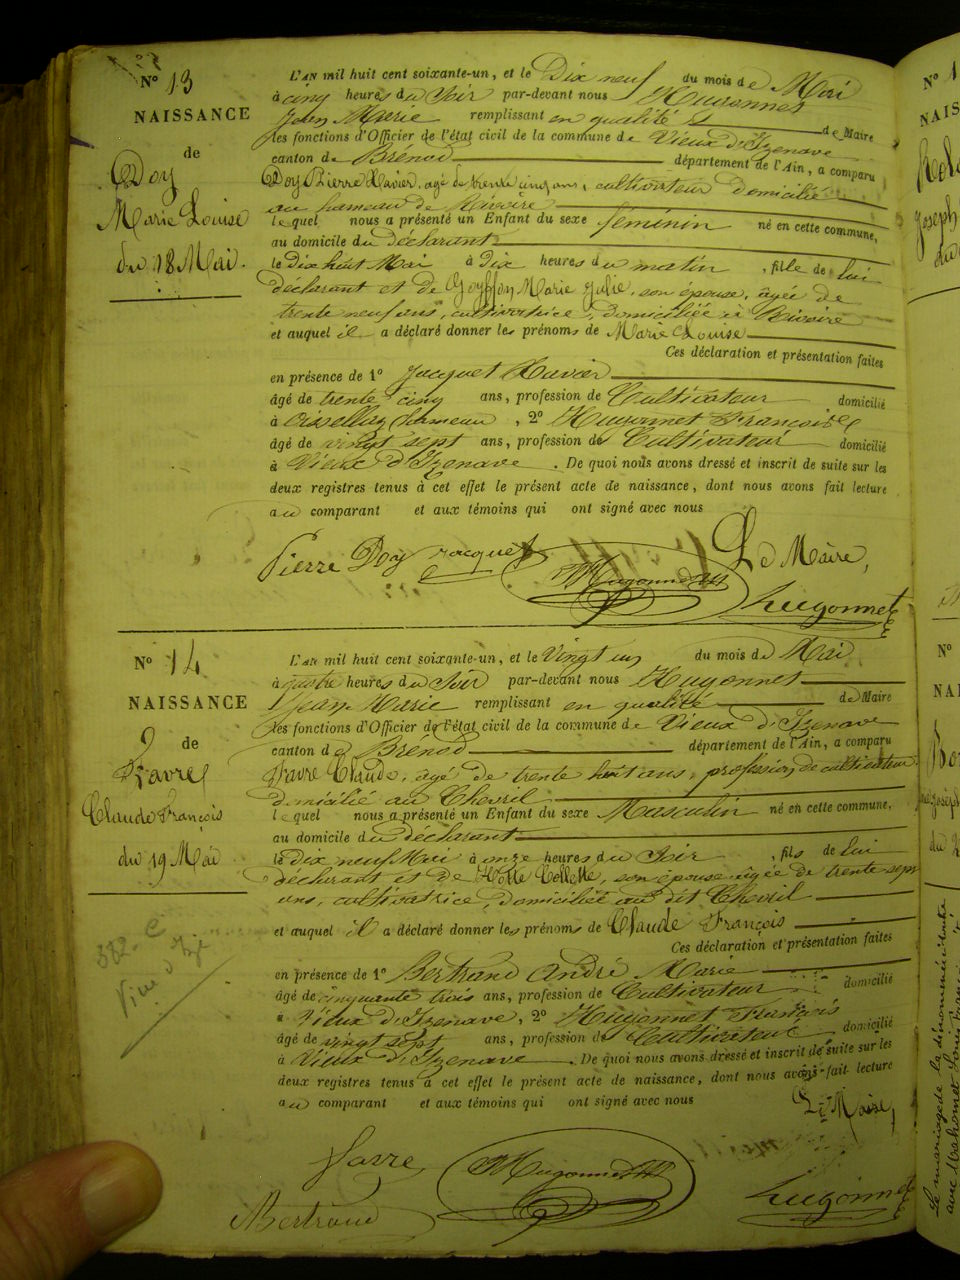 N° 13
NAISSANCE
de
Doy
Marie Louise
du 18 Mai.
L'AN mil huit cent soixante-un, et le Dix neuf du mois de Mai
à cinq heures du Soir par-devant nous Hugonnet
Jean Marie remplissant en qualité de Maire
les fonctions d'Officier de l'état civil de la commune de Vieux d'Izenave
canton de Brénod département de l'Ain, a comparu
Doy Pierre Xavier, agé de trente cinq ans, cultivateur domicilié
au hameau de Rivoire
lequel nous a présenté un Enfant du sexe féminin né en cette commune,
au domicile du déclarant
le dix huit Mai à dix heures du matin, fille de lui
déclarant et de Goyffon Marie Julie, son épouse, agée de
trente neuf ans, cultivatrice, domiciliée à Rivoire
et auquel il a déclaré donner les prénoms de Marie Louise
Ces déclaration et présentation faites
en présence de 1° Jacquet Xavier
âgé de trente cinq ans, profession de Cultivateur domicilié
à hameau, 2° Hugonnet François
âgé de vingt sept ans, profession de Cultivateur domicilié
à Vieux d'Izenave. De quoi nous avons dressé et inscrit de suite sur les
deux registres tenus à cet effet le présent acte de naissance, dont nous avons fait lecture
au comparant et aux témoins qui ont signé avec nous
Le Maire,
Pierre Doy Jacquet Hugonnet
Hugonnet
N° 14
NAISSANCE
de
Favre
Claude François
du 19 Mai
L'AN mil huit cent soixante-un, et le Vingt un du mois de Mai
à quatre heures du Soir par-devant nous Hugonnet
Jean Marie remplissant en qualité de Maire
les fonctions d'Officier de l'état civil de la commune de Vieux d'Izenave
canton de Brénod département de l'Ain, a comparu
Favre Claude, agé de trente huit ans, profession de cultivateur
domicilié au Chevril
lequel nous a présenté un Enfant du sexe Masculin né en cette commune,
au domicile du déclarant
le dix neuf Mai à onze heures du Soir, fils de lui
déclarant et de Collette, son épouse agée de trente sept
ans, cultivatrice, domiciliée au dit Chevril
et auquel il a déclaré donner les prénoms de Claude François
Ces déclaration et présentation faites
en présence de 1° Bertrand André Marie
âgé de cinquante trois ans, profession de Cultivateur domicilié
à Vieux d'Izenave, 2° Hugonnet François
âgé de vingt sept ans, profession de Cultivateur domicilié
à Vieux d'Izenave. De quoi nous avons dressé et inscrit de suite sur les
deux registres tenus à cet effet le présent acte de naissance, dont nous avons fait lecture
au comparant et aux témoins qui ont signé avec nous
Le Maire,
Favre Hugonnet
Bertrand Hugonnet